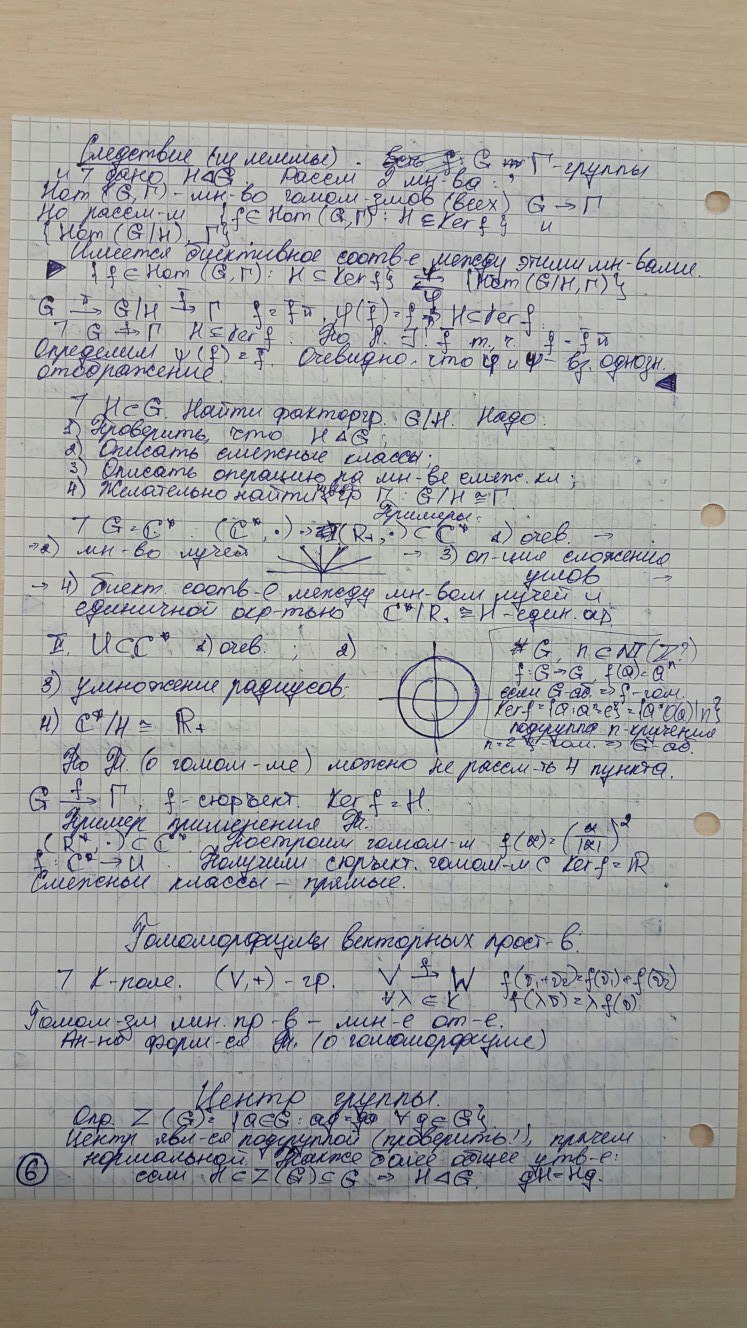 Следствие (из леммы). Есть f: G → Г-группы
и ⅂ дано H⊲G. Рассм 2 мн-ва:
Hom(G,Г) - мн-во гомом-змов (всех) G → Г
Но рассм-м {f∈Hom(G,Г): H⊆Ker f} и
{Hom(G/H), Г}
Имеется биективное соотв-е между этими мн-вами.
{f∈Hom(G,Г): H⊆Ker f} ⇄ {Hom(G/H,Г)}
G →π G/H →f̄ Г f = f̄π, φ(f̄)=f → H⊆Ker f
⅂ G →f Г H⊆Ker f. По Л. ∃! f̄ т.ч. f = f̄π
Определим ψ(f)=f̄. Очевидно, что φ и ψ - вз. однозн.
отображение.
⅂ H⊂G. Найти факторгр. G/H. Надо:
1) Проверить, что H⊲G;
2) Описать смежные классы;
3) Описать операцию на мн-ве смеж. кл;
4) Желательно найти гр Г: G/H≅Г
Примеры:
⅂ G=C* (C*,·) (R₊,·)⊂C* 1) очев. →
→2) мн-во лучей → 3) оп-ция сложения
углов →
→ 4) биект. соотв-е между мн-вом лучей и
единичной окр-тью C*/R₊≅H - един. окр
II. U⊂C* 1) очев. ; 2)
3) умножение радиусов.
4) C*/H ≅ R₊
# G, n∈N (Z?)
f: G→G, f(a)=aⁿ
если G-аб. ⇒ f-гом.
Ker f={a: aⁿ=e}={a: O(a)|n}
подгруппа n-кручения
n=2 f-гом. ⇒ G-аб.
По Т. (о гомом-ме) можно не рассм-ть 4 пункта.
G →f Г, f-сюръект. Ker f = H.
Пример применения Т.
(R*,·)⊂C* Построим гомом-м f(α)=(α/|α|)²
f: C*→U. Получили сюръект. гомом-м с Ker f = R
Смежные классы - прямые.
Гомоморфизмы векторных прост-в.
⅂ K-поле. (V,+) - гр. V →f W f(v₁+v₂)=f(v₁)+f(v₂)
∀λ∈K f(λv)=λf(v)
Гомом-зм лин. пр-в - лин-е от-е.
Ан-но форм-ся Т. (о гомоморфизме)
Центр группы.
Опр. Z(G)={a∈G: ag=ga ∀g∈G}
Центр явл-ся подгруппой (проверить!), причем
нормальной. Также более общее утв-е:
если H⊂Z(G)⊆G ⇒ H⊲G. gH=Hg.
6